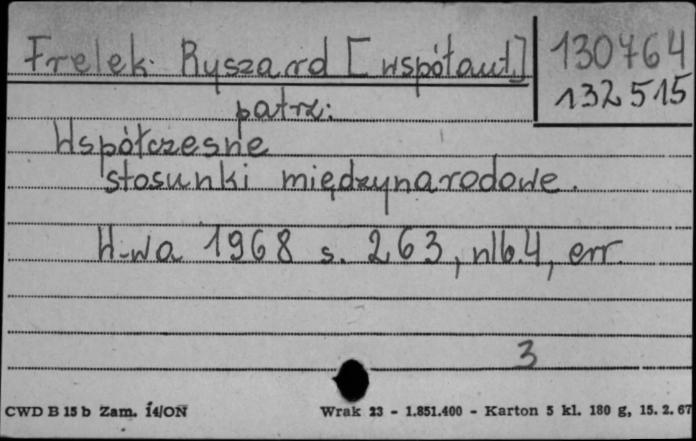 Frelek Ryszard [współaut.]
130764
132515
patrz:
Współczesne
stosunki międzynarodowe.
W-wa 1968 s. 263, nlb.4, err.
3
CWD B 15 b Zam. 14/ON
Wrak 23 - 1.851.400 - Karton 5 kl. 180 g, 15. 2. 67